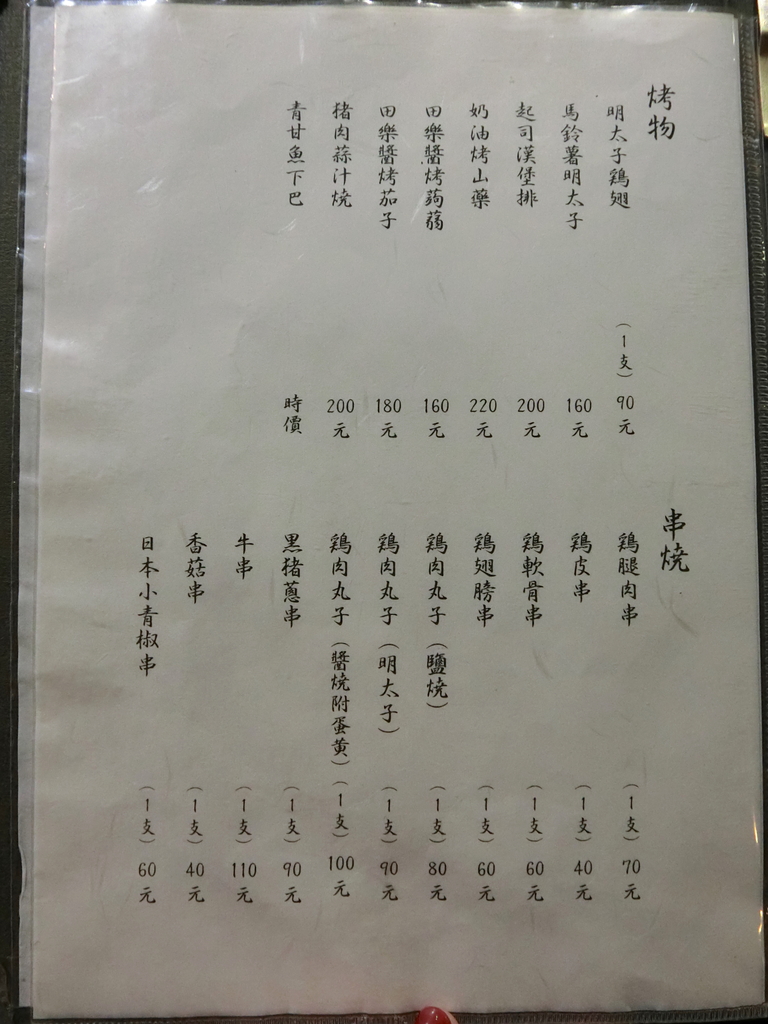 烤物
明太子鶏翅（1支）90元
馬鈴薯明太子 160元
起司漢堡排 200元
奶油烤山藥 220元
田樂醬烤蒟蒻 160元
田樂醬烤茄子 180元
豬肉蒜汁燒 200元
青甘魚下巴 時價
串燒
鶏腿肉串（1支）70元
鶏皮串（1支）40元
鶏軟骨串（1支）60元
鶏翅膀串（1支）60元
鶏肉丸子（鹽燒）（1支）80元
鶏肉丸子（明太子）（1支）90元
鶏肉丸子（醬燒附蛋黄）（1支）100元
黑豬蔥串（1支）90元
牛串（1支）110元
香菇串（1支）40元
日本小青椒串（1支）60元